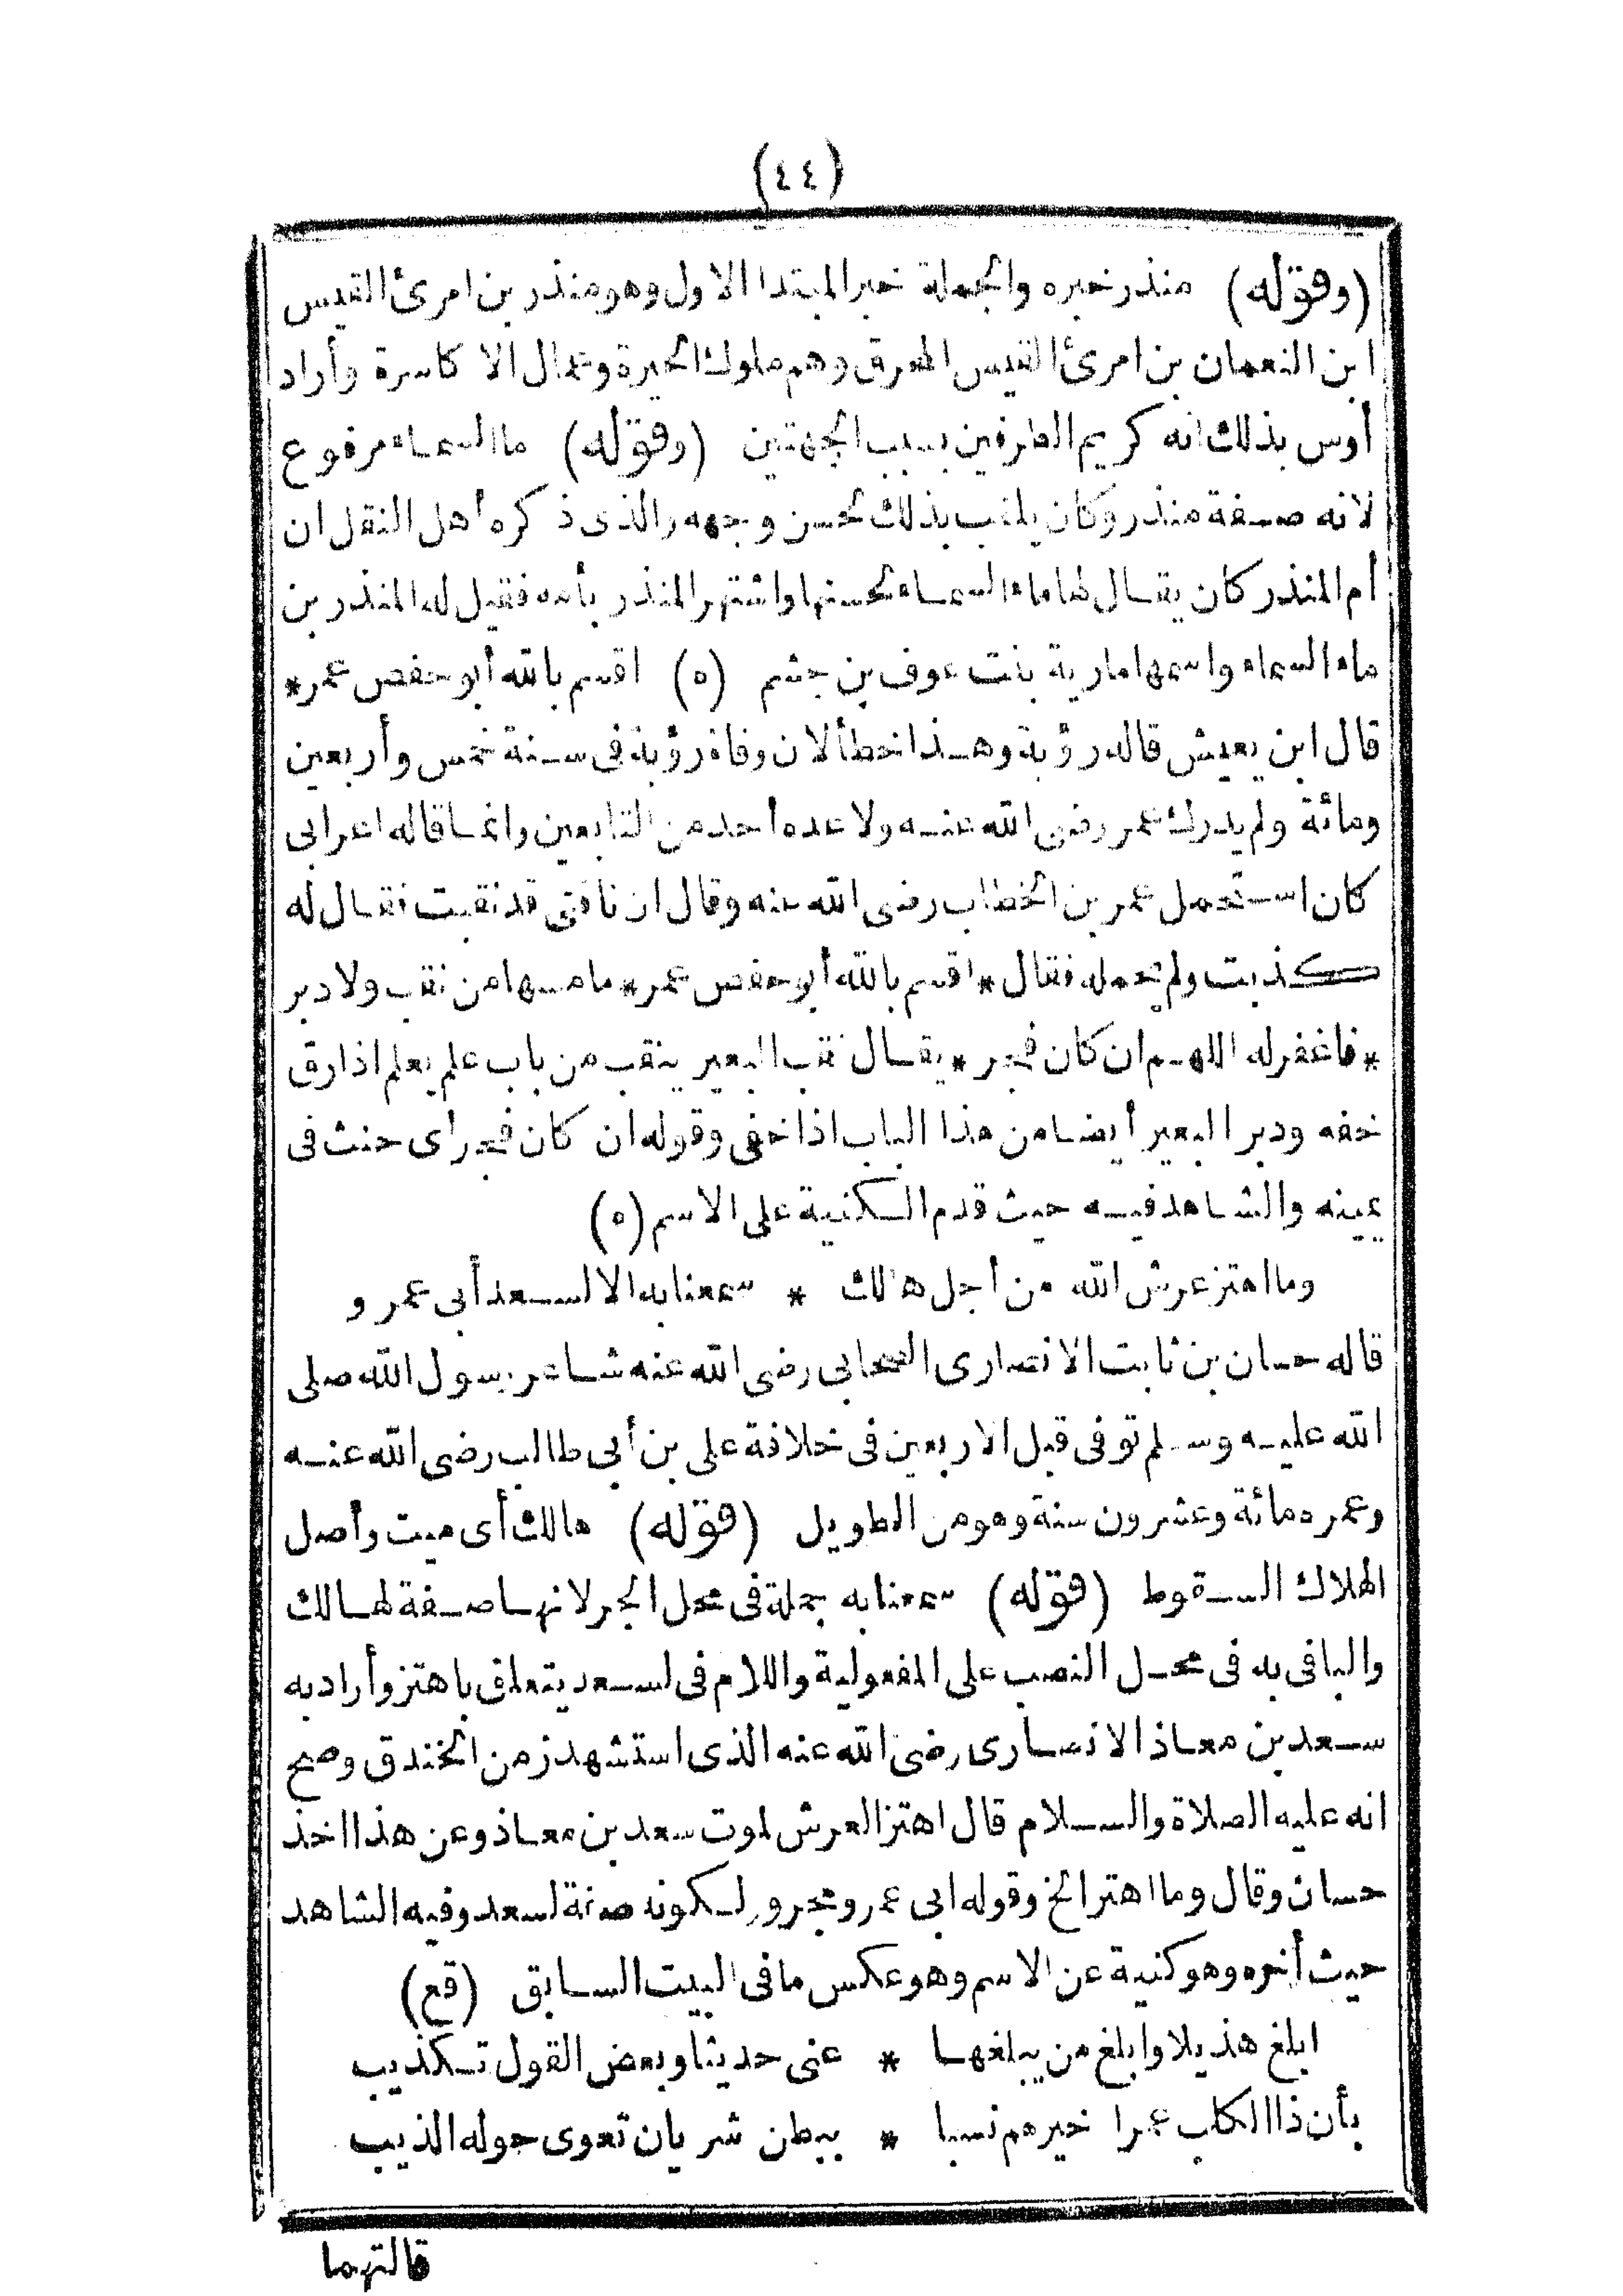 (٤٤)
(وقوله) منذر خبره والجملة خبر المبتدا الاول وهو منذر بن امرئ القيس
ابن النعمان بن امرئ القيس المحرق وهم ملوك الحيرة وعمال الاكاسرة وأراد
أوس بذلك انه كريم الطرفين بسبب الجهتين (وقوله) ما السماء مرفوع
لانه صفة منذر وكان يلقب بذلك لحسن وجهه والذى ذكره أهل النقل ان
أم المنذر كان يقال لها ماء السماء لحسنها واشتهر المنذر بأمه فقيل له المنذر بن
ماء السماء واسمها مارية بنت عوف بن جشم (ه) اقسم بالله أبو حفص عمر*
قال ابن يعيش قاله رؤبة وهذا خطأ لان وفاة رؤبة فى سنة خمس وأربعين
ومائة ولم يدرك عمر رضى الله عنه ولا عده أحد من التابعين وانما قاله اعرابى
كان استحمل عمر بن الخطاب رضى الله عنه وقال ان ناقتى قد نقبت فقال له
كذبت ولم يحمله فقال * اقسم بالله أبو حفص عمر * ما مسها من نقب ولا دبر
* فاغفر له اللهم ان كان فجر * يقال نقب البعير ينقب من باب علم يعلم اذا رق
خفه ودبر البعير أيضا من هذا الباب اذا خفى وقوله ان كان فجر اى حنث فى
يمينه والشاهد فيه حيث قدم الكنية على الاسم (ه)
وما اهتز عرش الله من أجل هالك * سمعنا به الا لسعد أبى عمرو
قاله حسان بن ثابت الانصارى الصحابى رضى الله عنه شاعر رسول الله صلى
الله عليه وسلم توفى قبل الاربعين فى خلافة على بن أبى طالب رضى الله عنه
وعمره مائة وعشرون سنة وهو من الطويل (قوله) هالك أى ميت وأصل
الهلاك السقوط (قوله) سمعنا به جملة فى محل الجر لانها صفة لهالك
والباقى به فى محل النصب على المفعولية واللام فى لسعد يتعلق باهتز وأراد به
سعد بن معاذ الانصارى رضى الله عنه الذى استشهد زمن الخندق وصح
انه عليه الصلاة والسلام قال اهتز العرش لموت سعد بن معاذ وعن هذا اخذ
حسان وقال وما اهتز الخ وقوله ابى عمرو مجرور لكونه صفة لسعد وفيه الشاهد
حيث أخره وهو كنية عن الاسم وهو عكس ما فى البيت السابق (قع)
ابلغ هذيلا وابلغ من يبلغها * عنى حديثا وبعض القول تكذيب
بأن ذا الكلب عمرا خيرهم نسبا * ببطن شريان تعوى حوله الذيب
قالتهما